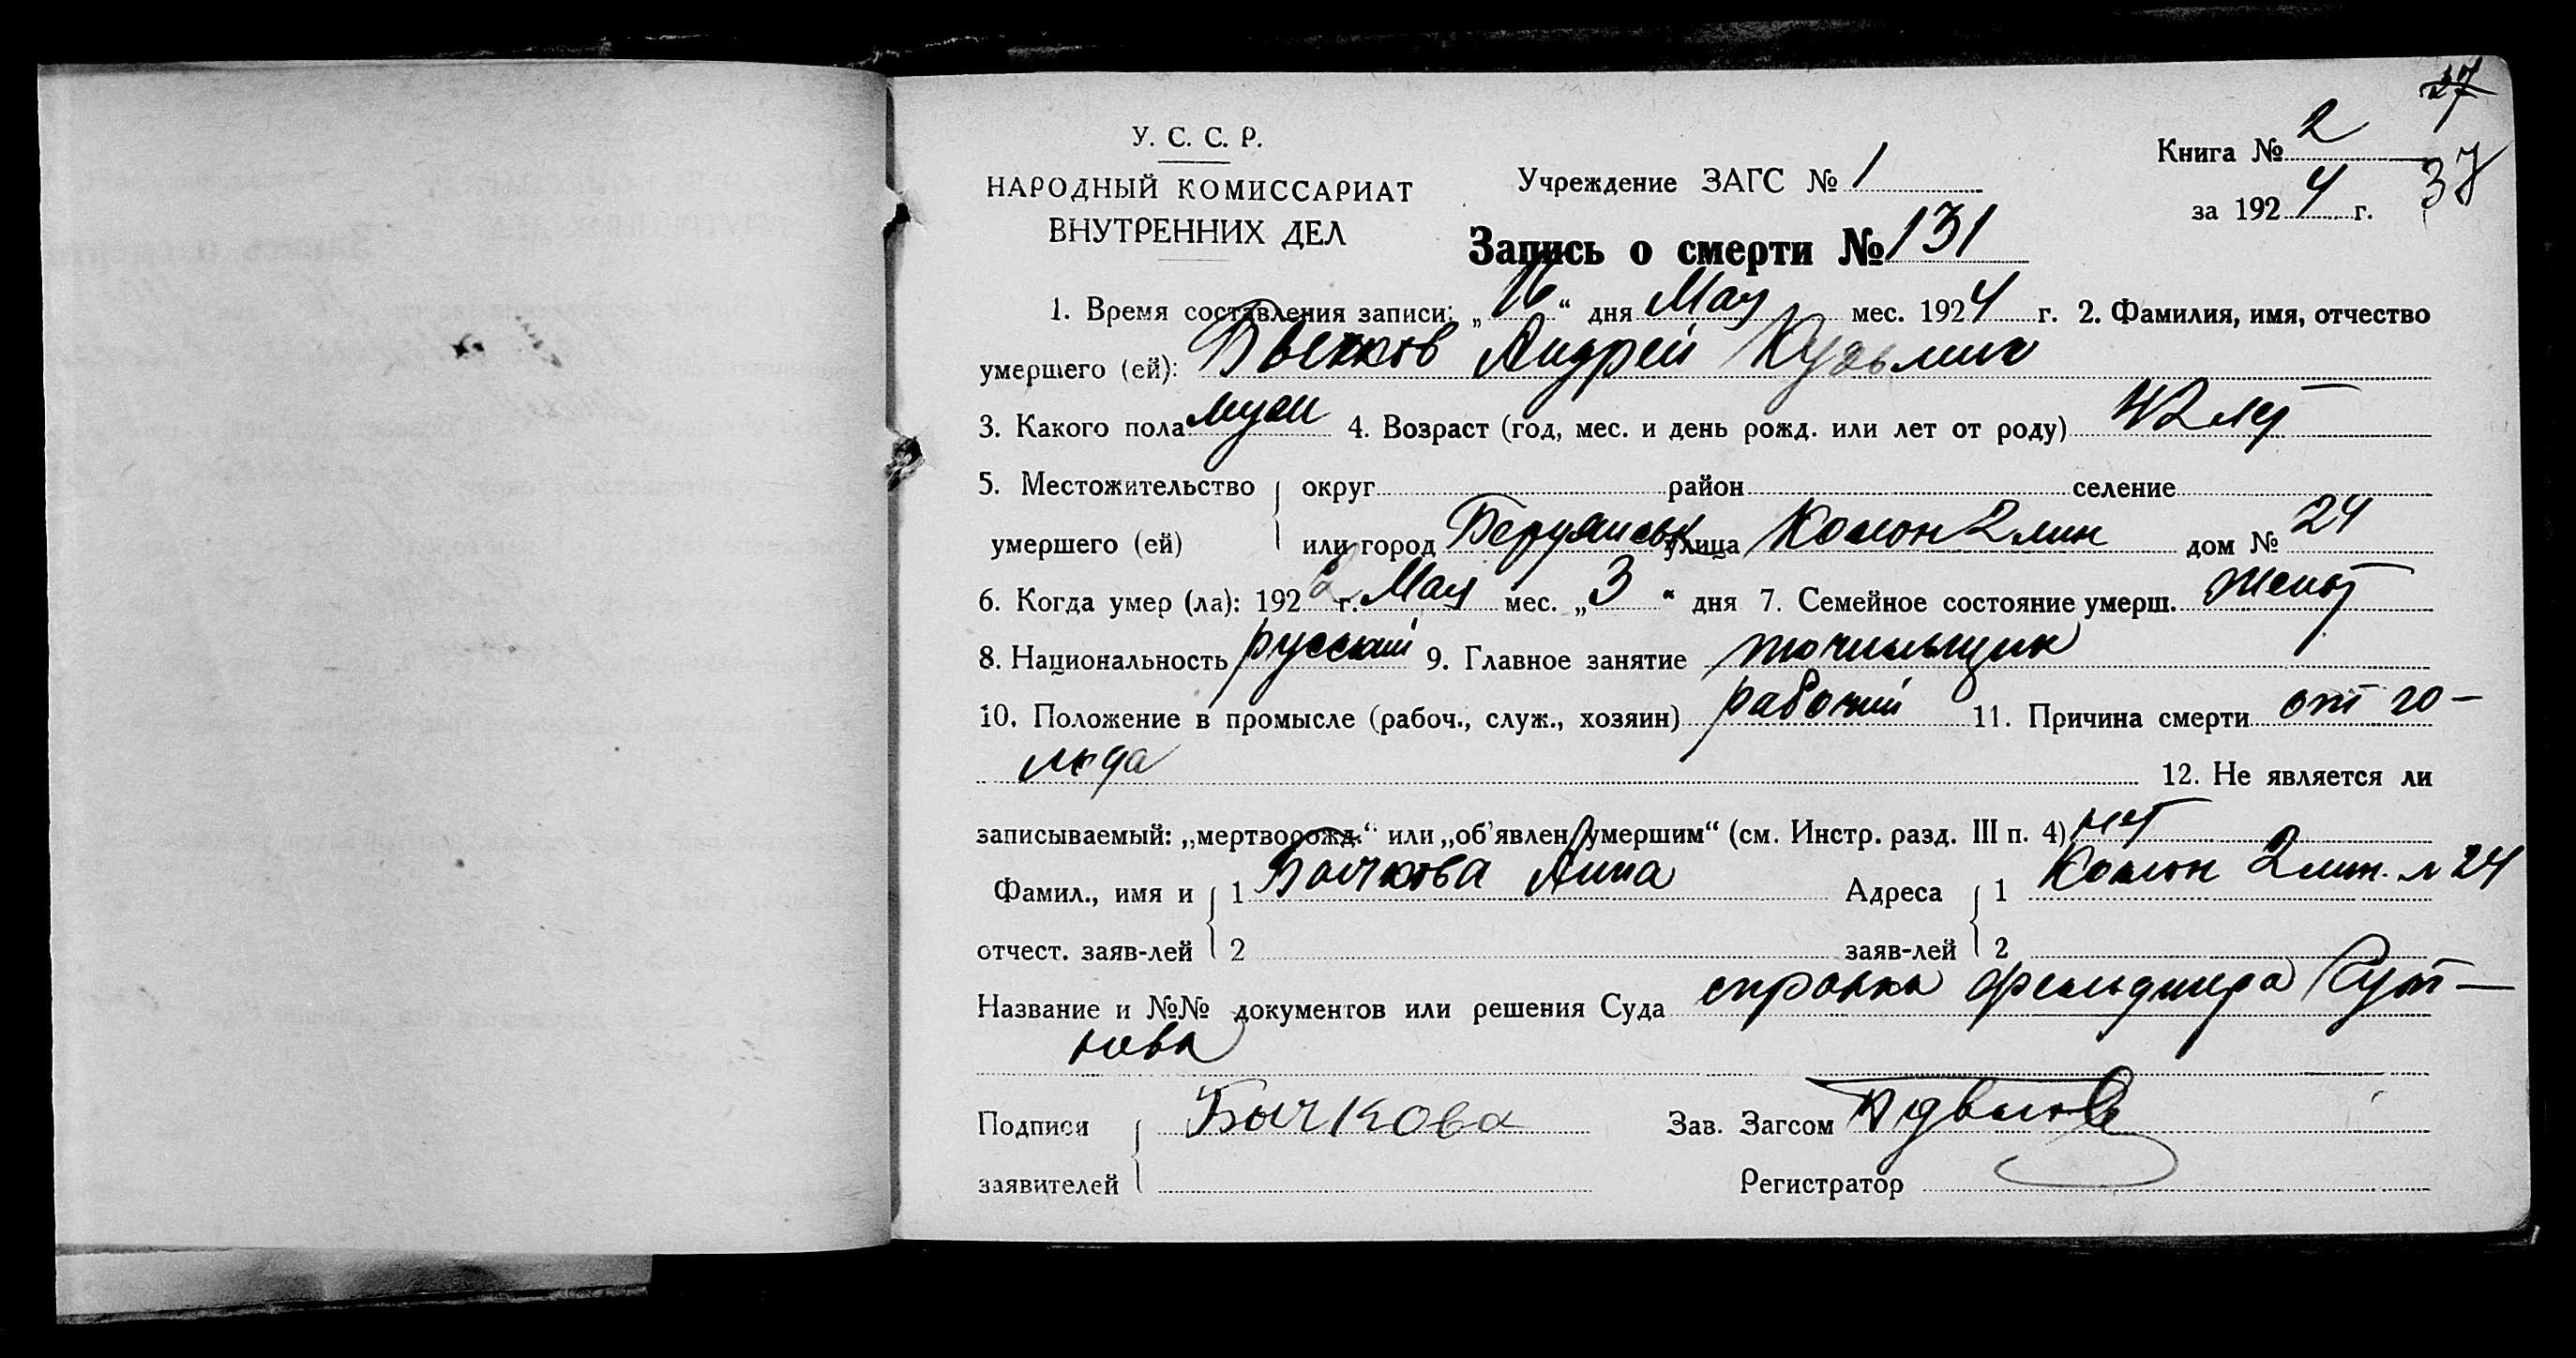 27
У. С. С. Р.
НАРОДНЫЙ КОМИССАРИАТ
ВНУТРЕННИХ ДЕЛ
Учреждение ЗАГС № 1
Книга № 2
37
за 1924 г.
Запись о смерти № 131
1. Время составления записи: „16“ дня Мая мес. 1924 г. 2. Фамилия, имя, отчество
умершего (ей): Бычков Андрей Кузьмич
3. Какого пола муж 4. Возраст (год, мес. и день рожд. или лет от роду) 42 лет
5. Местожительство округ район селение
умершего (ей) или город Бердянськ улица Колон 2 лин дом № 24
6. Когда умер (ла): 1922 г. Мая мес. „3“ дня 7. Семейное состояние умерш. женат
8. Национальность русский 9. Главное занятие точильщик
10. Положение в промысле (рабоч., служ., хозяин) рабочий 11. Причина смерти от го-
лода 12. Не является ли
записываемый: „мертворожд.“ или „об'явлен умершим“ (см. Инстр. разд. III п. 4) нет
Фамил., имя и 1 Бычкова Анна Адреса 1 Колон 2 лин. № 24
отчест. заяв-лей 2 заяв-лей 2
Название и №№ документов или решения Суда справка фельдшера Кут-
нова
Подписи Бычкова Зав. Загсом
заявителей Регистратор